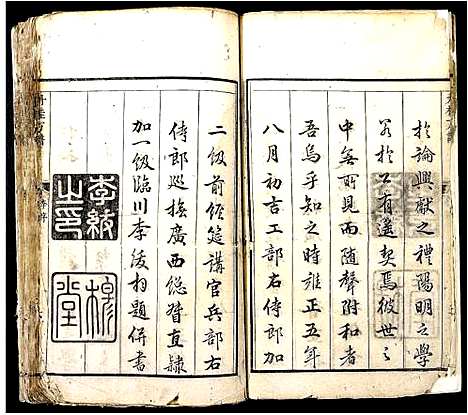 於論興獻之禮陽明之學
若於公有遙契焉彼世之
中無所見而隨聲附和者
吾烏乎知之時雍正五年
八月初吉工部右侍郎加
二級前經筵講官兵部右
侍郎巡撫廣西總督直隸
加一級臨川李紱拜題併書
李紱
之印
穆
堂